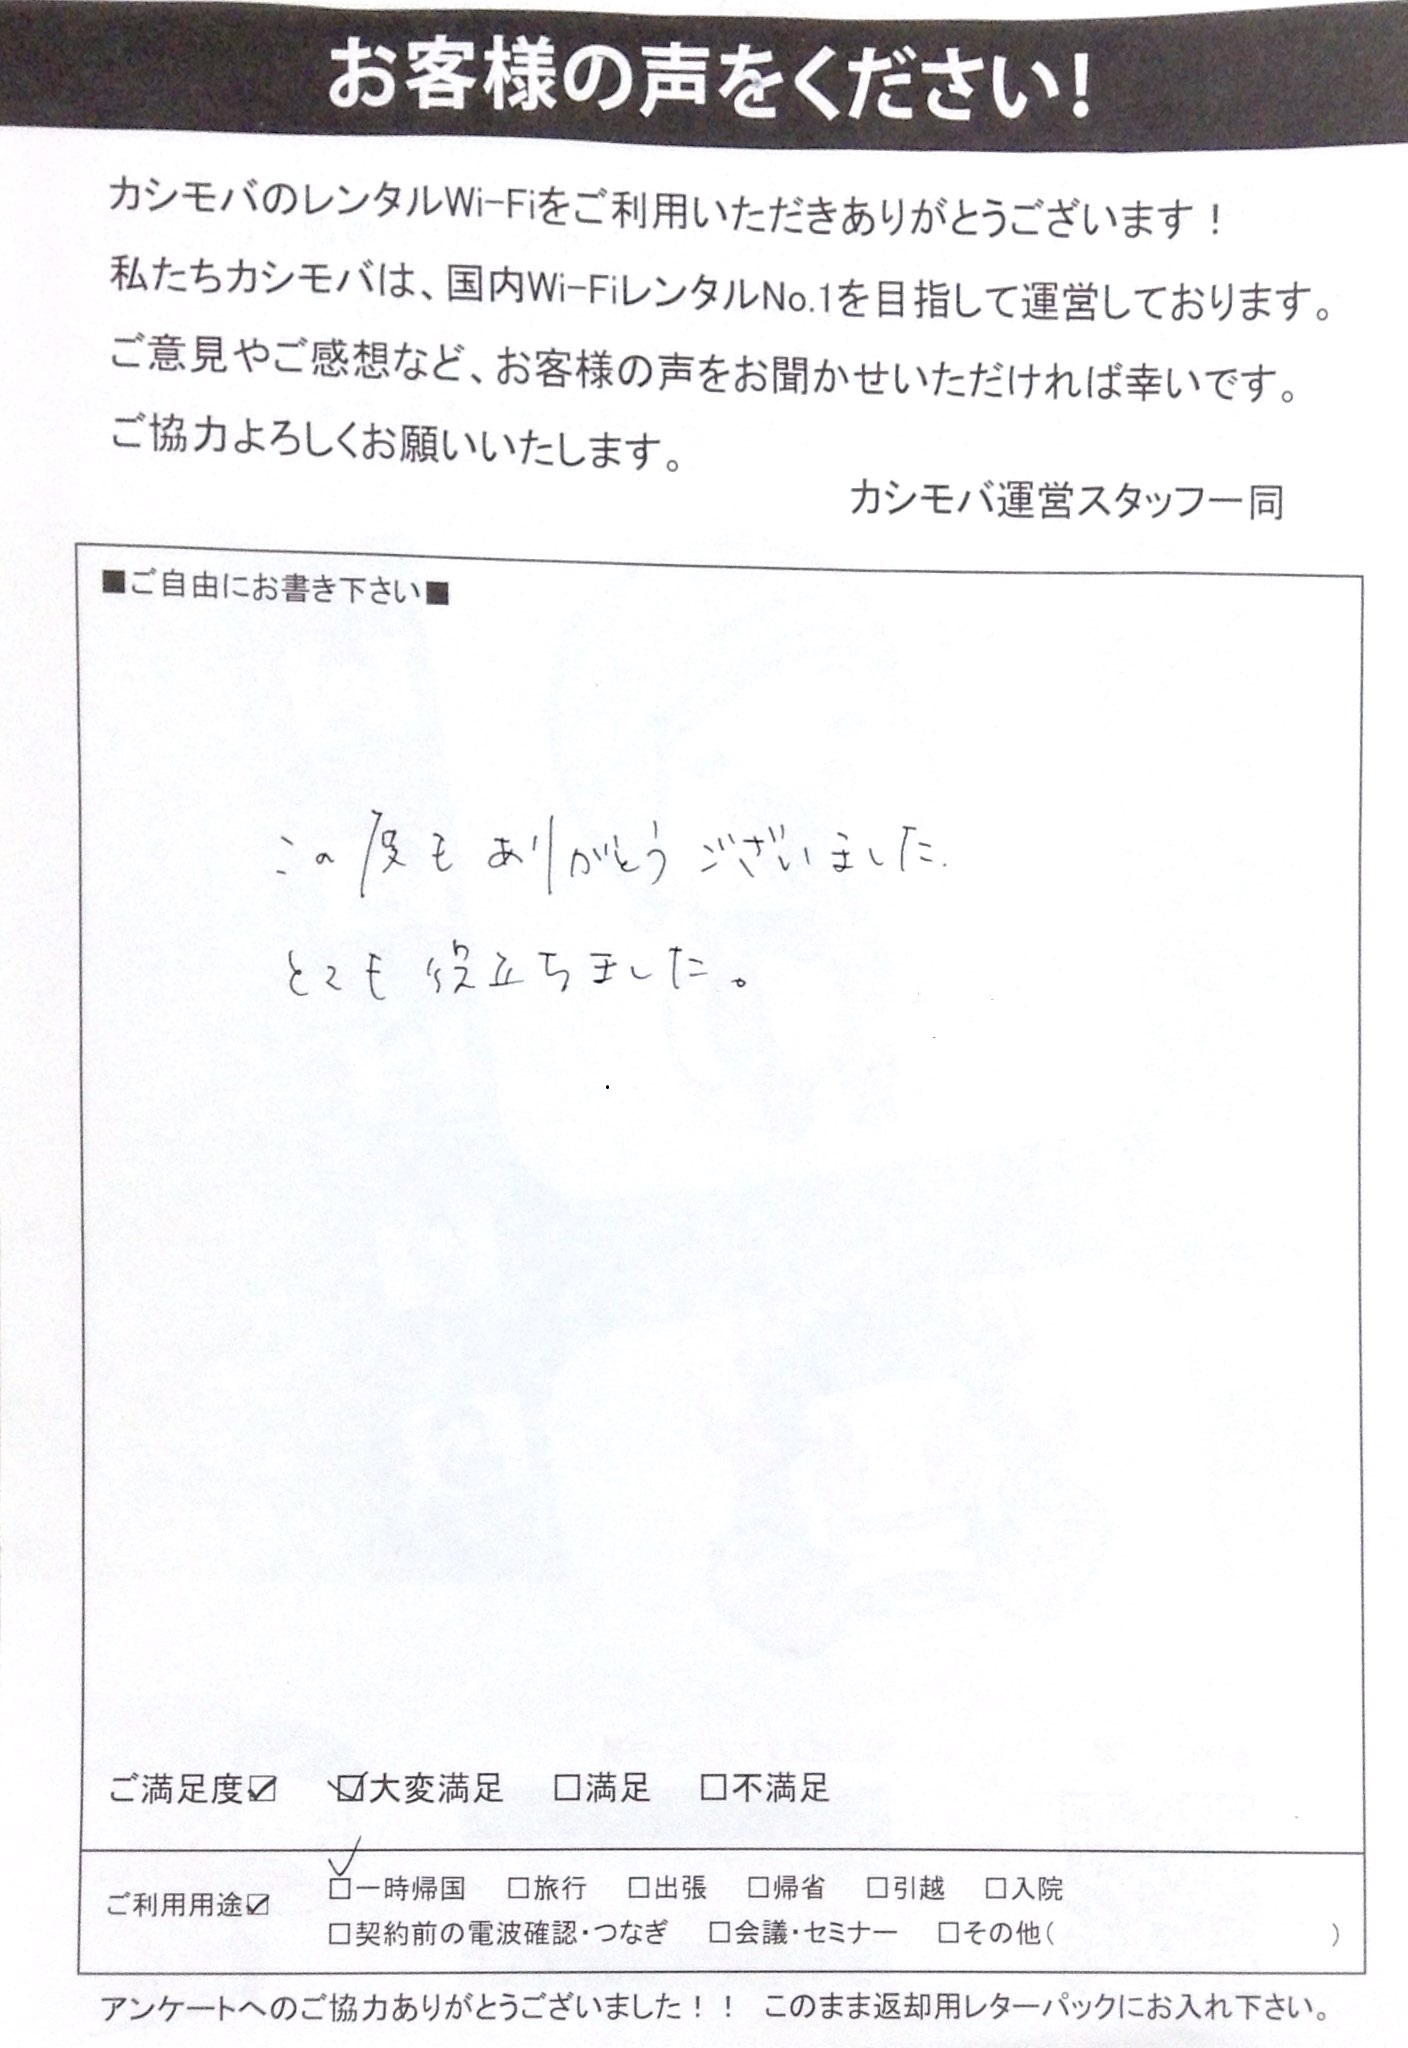 お客様の声をください!
カシモバのレンタルWi-Fiをご利用いただきありがとうございます！
私たちカシモバは、国内Wi-FiレンタルNo.1を目指して運営しております。
ご意見やご感想など、お客様の声をお聞かせいただければ幸いです。
ご協力よろしくお願いいたします。
カシモバ運営スタッフ一同
■ご自由にお書き下さい■
この度もありがとうございました.
とても役立ちました。
ご満足度☑ ☑大変満足 □満足 □不満足
ご利用用途☑ ☑一時帰国 □旅行 □出張 □帰省 □引越 □入院
□契約前の電波確認・つなぎ □会議・セミナー □その他( )
アンケートへのご協力ありがとうございました！！ このまま返却用レターパックにお入れ下さい。